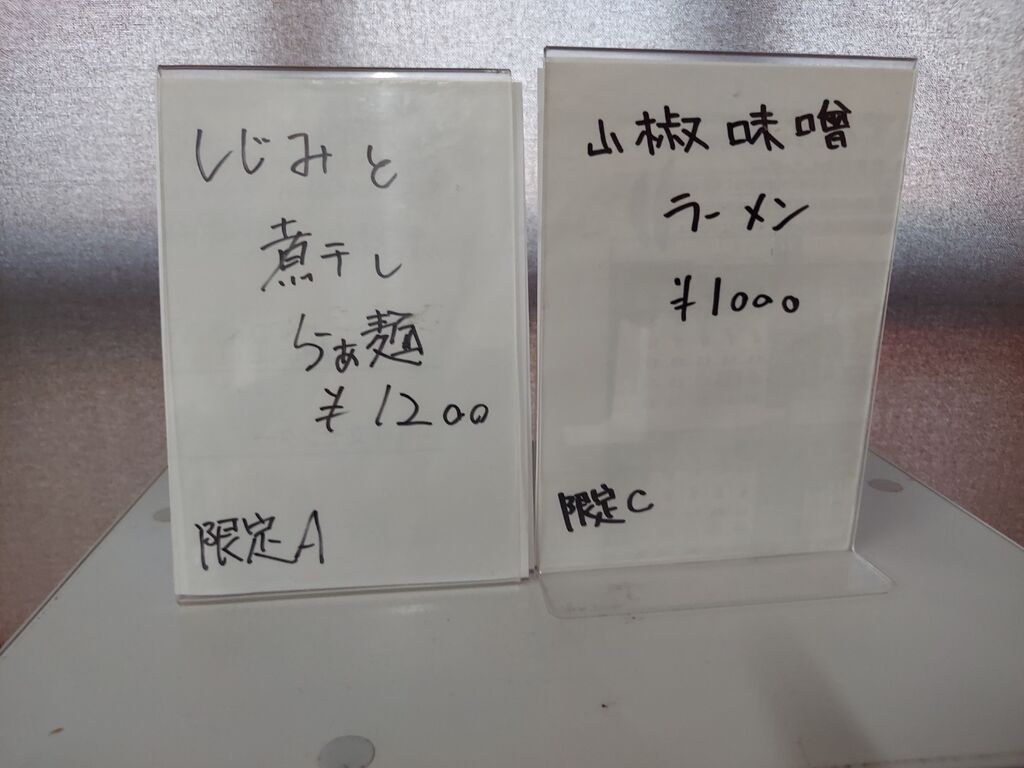 しじみと
煮干し
らぁ麺
¥1200
限定A
山椒味噌
ラーメン
¥1000
限定C